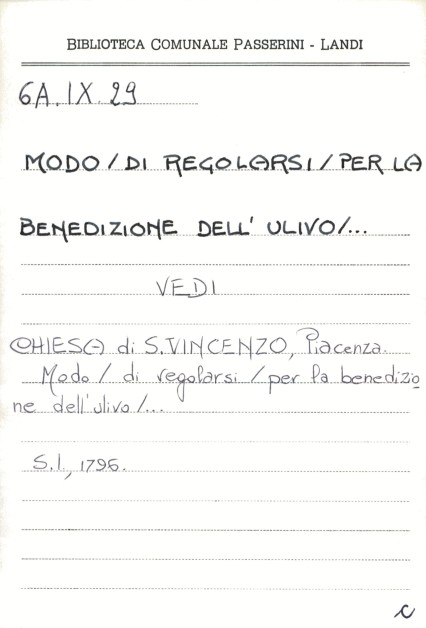 BIBLIOTECA COMUNALE PASSERINI - LANDI
6A.IX.29
MODO / DI REGOLARSI / PER LA
BENEDIZIONE DELL' ULIVO /...
VEDI
CHIESA di S. VINCENZO, Piacenza.
Modo / di regolarsi / per la benedizio
ne dell'ulivo /...
S.l., 1796.